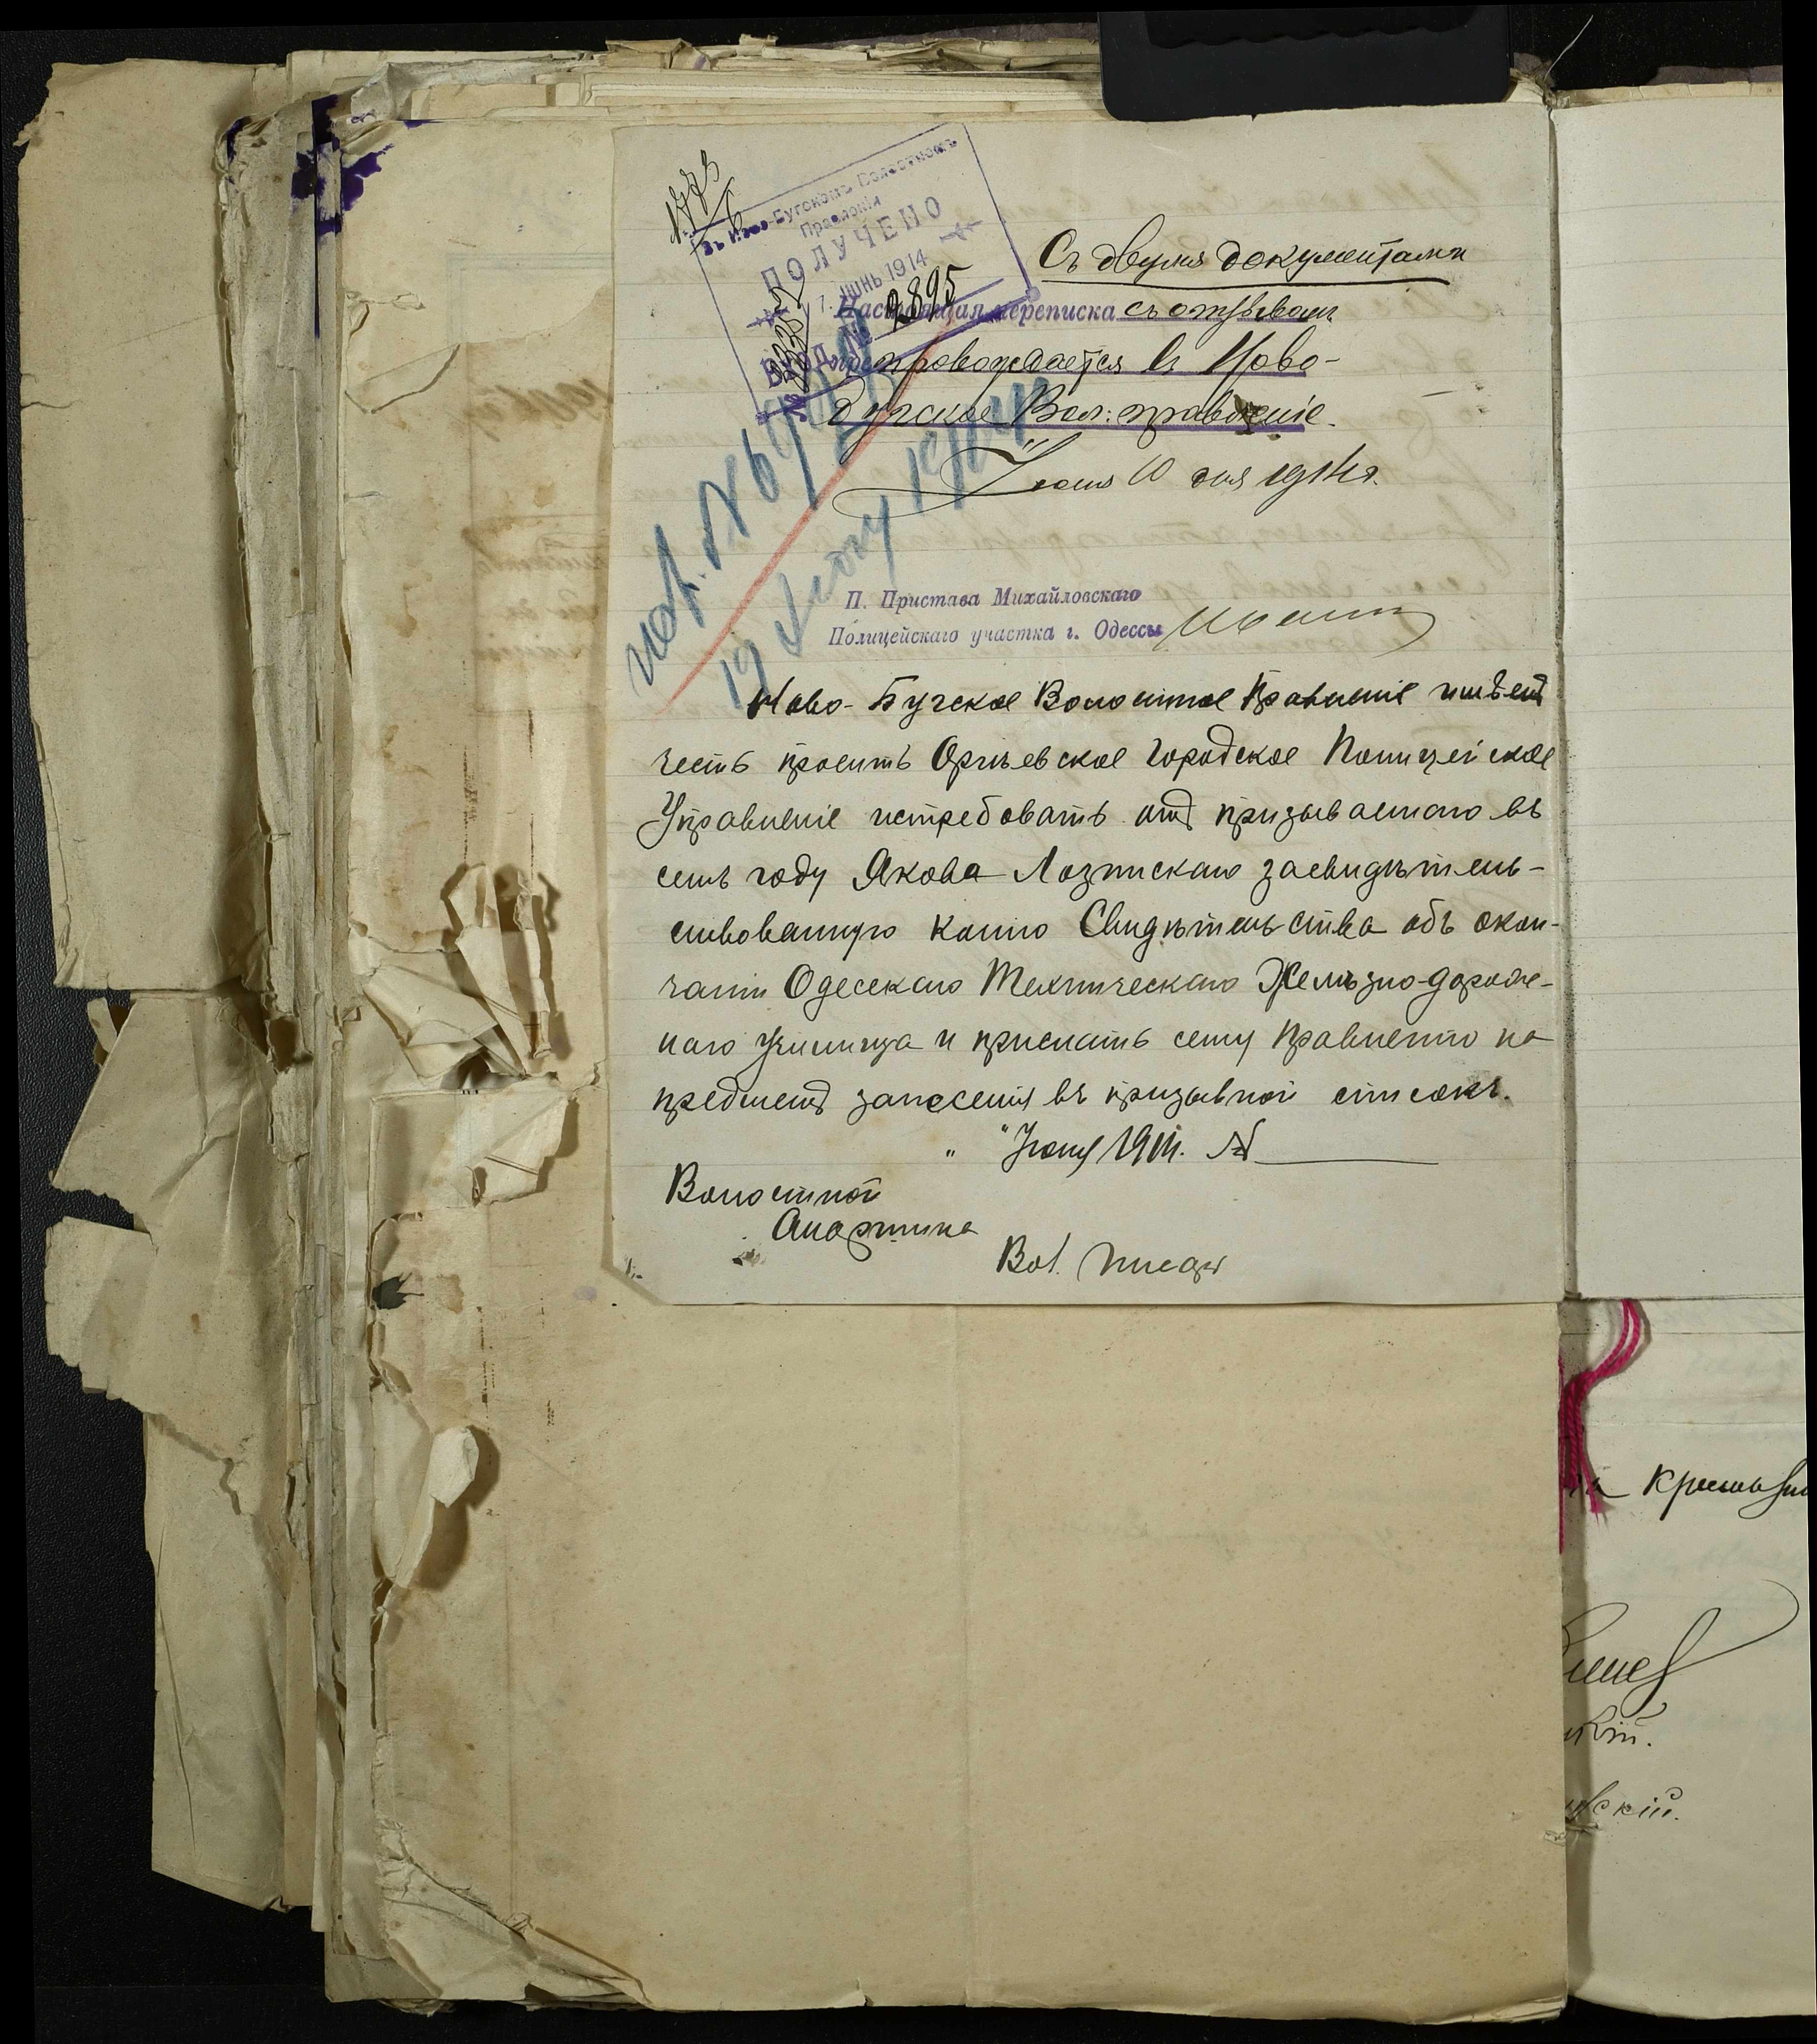 1773/6
Въ Ново-Бугскомъ Волостномъ
Правленіи
ПОЛУЧЕНО
ІЮНЬ 1914
Вход. №
2895
Съ двумя документами
Настоящая переписка съ отзывомъ
препровождается въ Ново-
Бугское Вол: правленіе.
Іюня 10 дня 1914 г.
19 Іюня 1914
П. Пристава Михайловскаго
Полицейскаго участка г. Одессы
Ново-Бугское Волостное Правленіе имѣетъ
честь просить Оргѣевское Городское Полицейское
Управленіе истребовать отъ призываемаго въ
семъ году Якова Лозинскаго засвидѣтель-
ствованную копію Свидѣтельства объ окон-
чаніи Одесскаго Техническаго Желѣзно-дорож-
наго Училища и прислать сему Правленію на
предметъ занесенія въ призывной списокъ.
" " Іюня 1914. №
Волостной
Старшина
Вол. Писарь